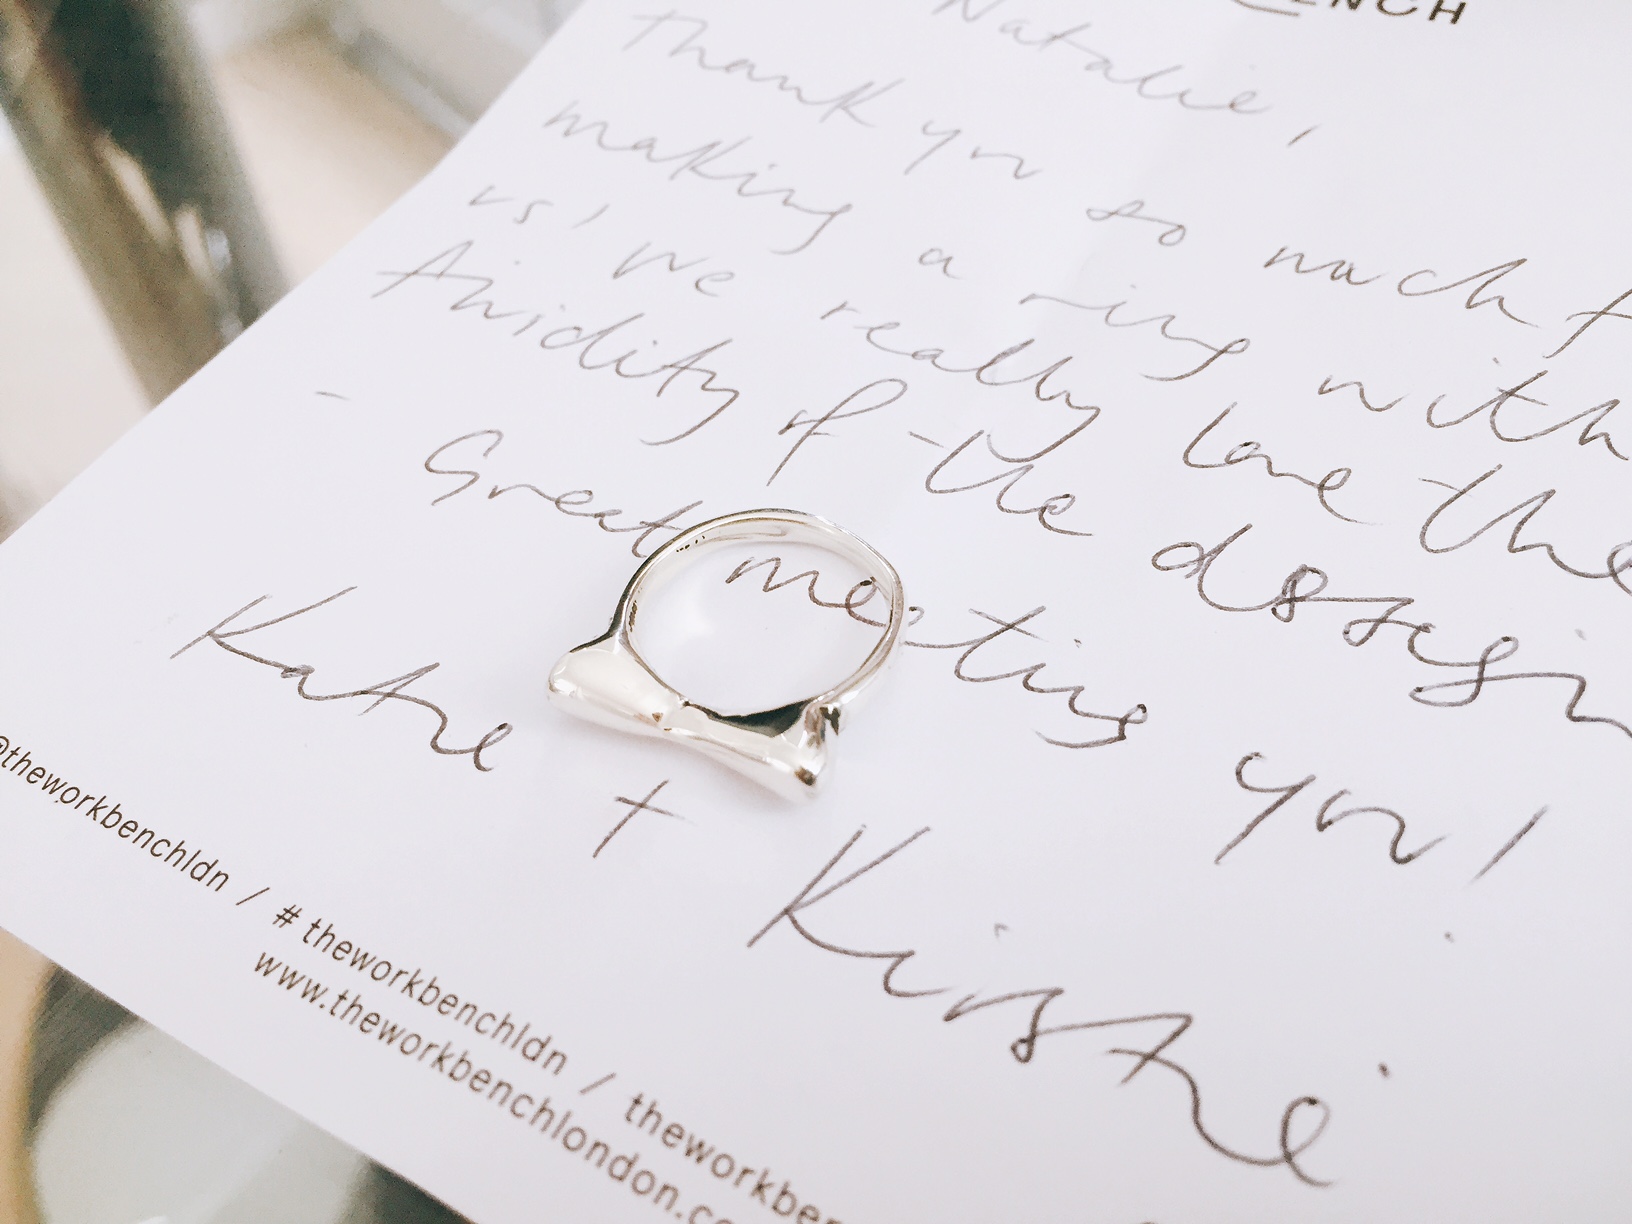 ENCH
Natalie,
Thank you so much f
making a ring with
us, we really love the
fluidity of the dssesign
- Great meeting you!
Katie + Kirstie
@theworkbenchldn / # theworkbenchldn / theworkben
www.theworkbenchlondon.co